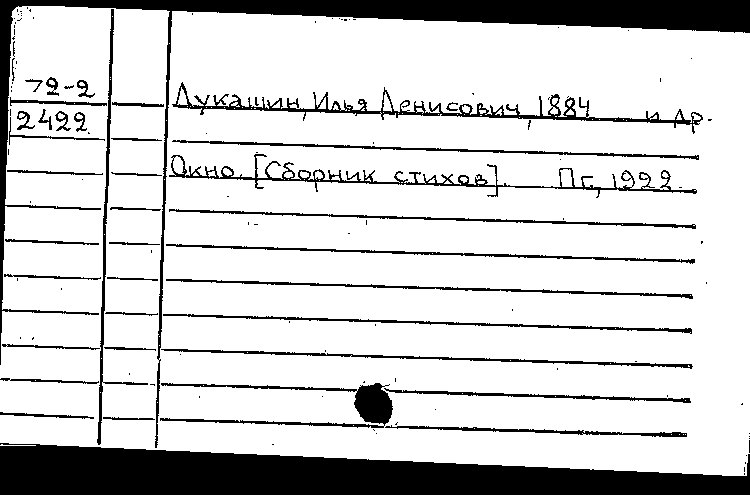 72-2
2422
Лукашин, Илья Денисович, 1884 и др.
Окно. [Сборник стихов]. Пг., 1922.